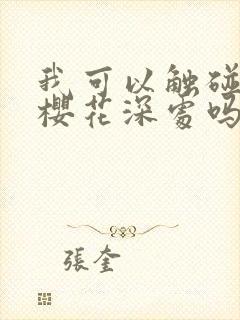 我可以触碰
樱花深处吗
張奎